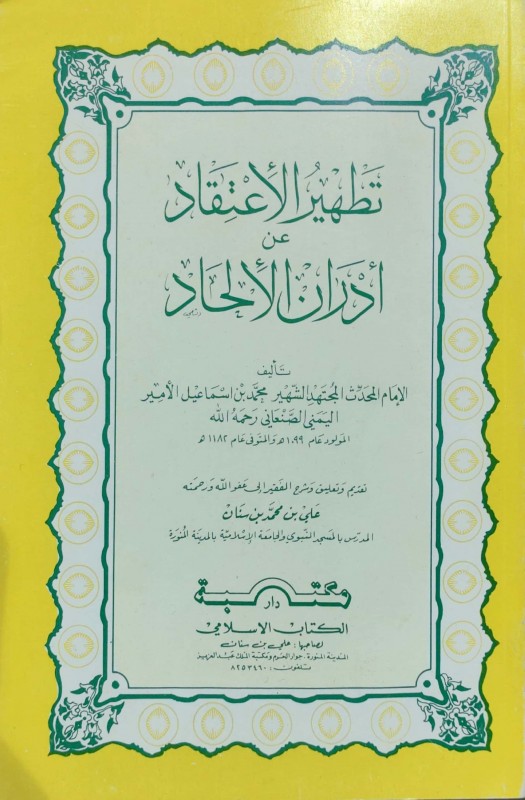 تَطْهِيرُ الأَعْتِقَاد
عن
أدْرَان الأَلحَاد
تأليف
الإمام المحدّث المجتهد الشهير محمّد بن اسماعيل الأمير
اليمني الصّنعاني رَحمَهُ الله
المولود عام ١٠٩٩ هـ والمتوفى عام ١١٨٢ هـ
تقديم وتعليق وشرح الفقير إلى عفو الله ورحمته
علي بن محمد بن سنان
المدرّس بالمسجد النّبوي والجامعَة الإسْلاميّة بالمدينَة المنُوّرَة
مكتبة
دار
الكتاب الاسلامي
لصاحبها : علي بن سنان
المدينة المنورة . جوار العلوم ومكتبة الملك عبد العزيز
تلفون : ٨٢٥٣٤٦٠